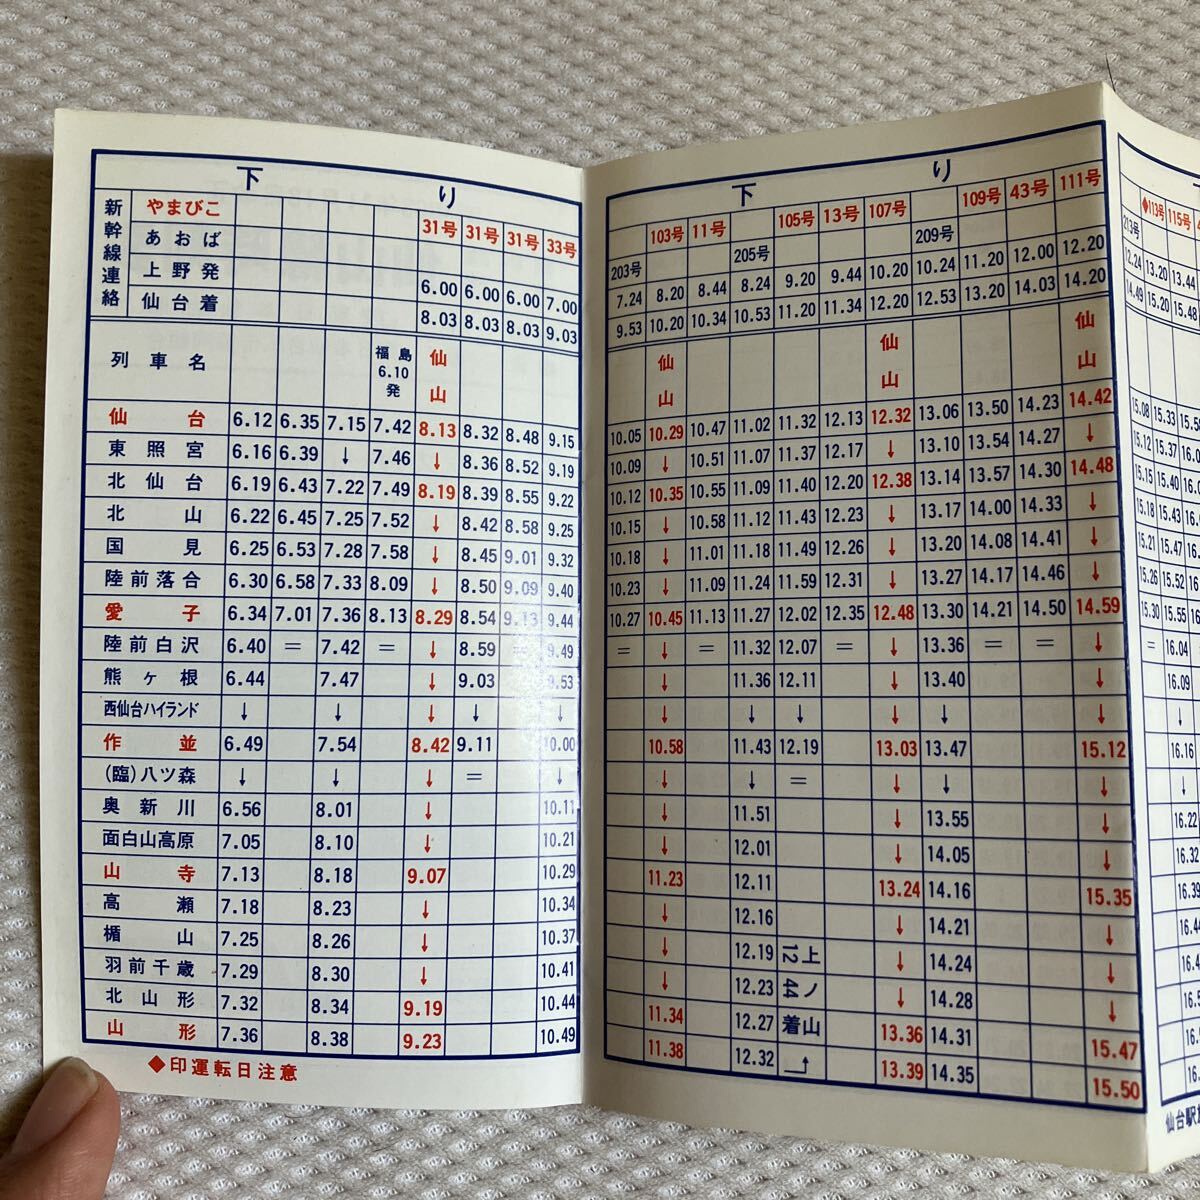 下 り
新幹線連絡 やまびこ 31号 31号 31号 33号
あおば
上野発 6.00 6.00 6.00 7.00
仙台着 8.03 8.03 8.03 9.03
列車名 福島6.10発 仙山
仙台 6.12 6.35 7.15 7.42 8.13 8.32 8.48 9.15
東照宮 6.16 6.39 ↓ 7.46 ↓ 8.36 8.52 9.19
北仙台 6.19 6.43 7.22 7.49 8.19 8.39 8.55 9.22
北山 6.22 6.45 7.25 7.52 ↓ 8.42 8.58 9.25
国見 6.25 6.53 7.28 7.58 ↓ 8.45 9.01 9.32
陸前落合 6.30 6.58 7.33 8.09 ↓ 8.50 9.09 9.40
愛子 6.34 7.01 7.36 8.13 8.29 8.54 9.13 9.44
陸前白沢 6.40 = 7.42 = ↓ 8.59 = 9.49
熊ヶ根 6.44 7.47 ↓ 9.03 9.53
西仙台ハイランド ↓ ↓ ↓ ↓ ↓
作並 6.49 7.54 8.42 9.11 10.00
(臨)八ツ森 ↓ ↓ ↓ = ↓
奥新川 6.56 8.01 ↓ 10.11
面白山高原 7.05 8.10 ↓ 10.21
山寺 7.13 8.18 9.07 10.29
高瀬 7.18 8.23 ↓ 10.34
楯山 7.25 8.26 ↓ 10.37
羽前千歳 7.29 8.30 ↓ 10.41
北山形 7.32 8.34 9.19 10.44
山形 7.36 8.38 9.23 10.49
◆印運転日注意
下 り
103号 11号 105号 13号 107号 109号 43号 111号
203号 205号 209号
7.24 8.20 8.44 8.24 9.20 9.44 10.20 10.24 11.20 12.00 12.20
9.53 10.20 10.34 10.53 11.20 11.34 12.20 12.53 13.20 14.03 14.20
仙山 仙山 仙山
10.05 10.29 10.47 11.02 11.32 12.13 12.32 13.06 13.50 14.23 14.42
10.09 ↓ 10.51 11.07 11.37 12.17 ↓ 13.10 13.54 14.27 ↓
10.12 10.35 10.55 11.09 11.40 12.20 12.38 13.14 13.57 14.30 14.48
10.15 ↓ 10.58 11.12 11.43 12.23 ↓ 13.17 14.00 14.33 ↓
10.18 ↓ 11.01 11.18 11.49 12.26 ↓ 13.20 14.08 14.41 ↓
10.23 ↓ 11.09 11.24 11.59 12.31 ↓ 13.27 14.17 14.46 ↓
10.27 10.45 11.13 11.27 12.02 12.35 12.48 13.30 14.21 14.50 14.59
= ↓ = 11.32 12.07 = ↓ 13.36 = = ↓
↓ 11.36 12.11 ↓ 13.40 ↓
↓ ↓ ↓ ↓ ↓ ↓
10.58 11.43 12.19 13.03 13.47 15.12
↓ ↓ = ↓ ↓ ↓
↓ 11.51 ↓ 13.55 ↓
↓ 12.01 ↓ 14.05 ↓
11.23 12.11 13.24 14.16 15.35
↓ 12.16 ↓ 14.21 ↓
↓ 12.19 ↓ 14.24 ↓
↓ 12.23 ↓ 14.28 ↓
11.34 12.27 13.36 14.31 15.47
11.38 12.32 13.39 14.35 15.50
上ノ山着 12.44
◆113号 115号
213号
12.24 13.20 13.44
14.49 15.20 15.48
15.08 15.33
15.12 15.37
15.15 15.40
15.18 15.43
15.21 15.47
15.26 15.52
15.30 15.55
= 16.04
16.09
↓
16.16
↓
16.22
16.32
16.39
仙台駅